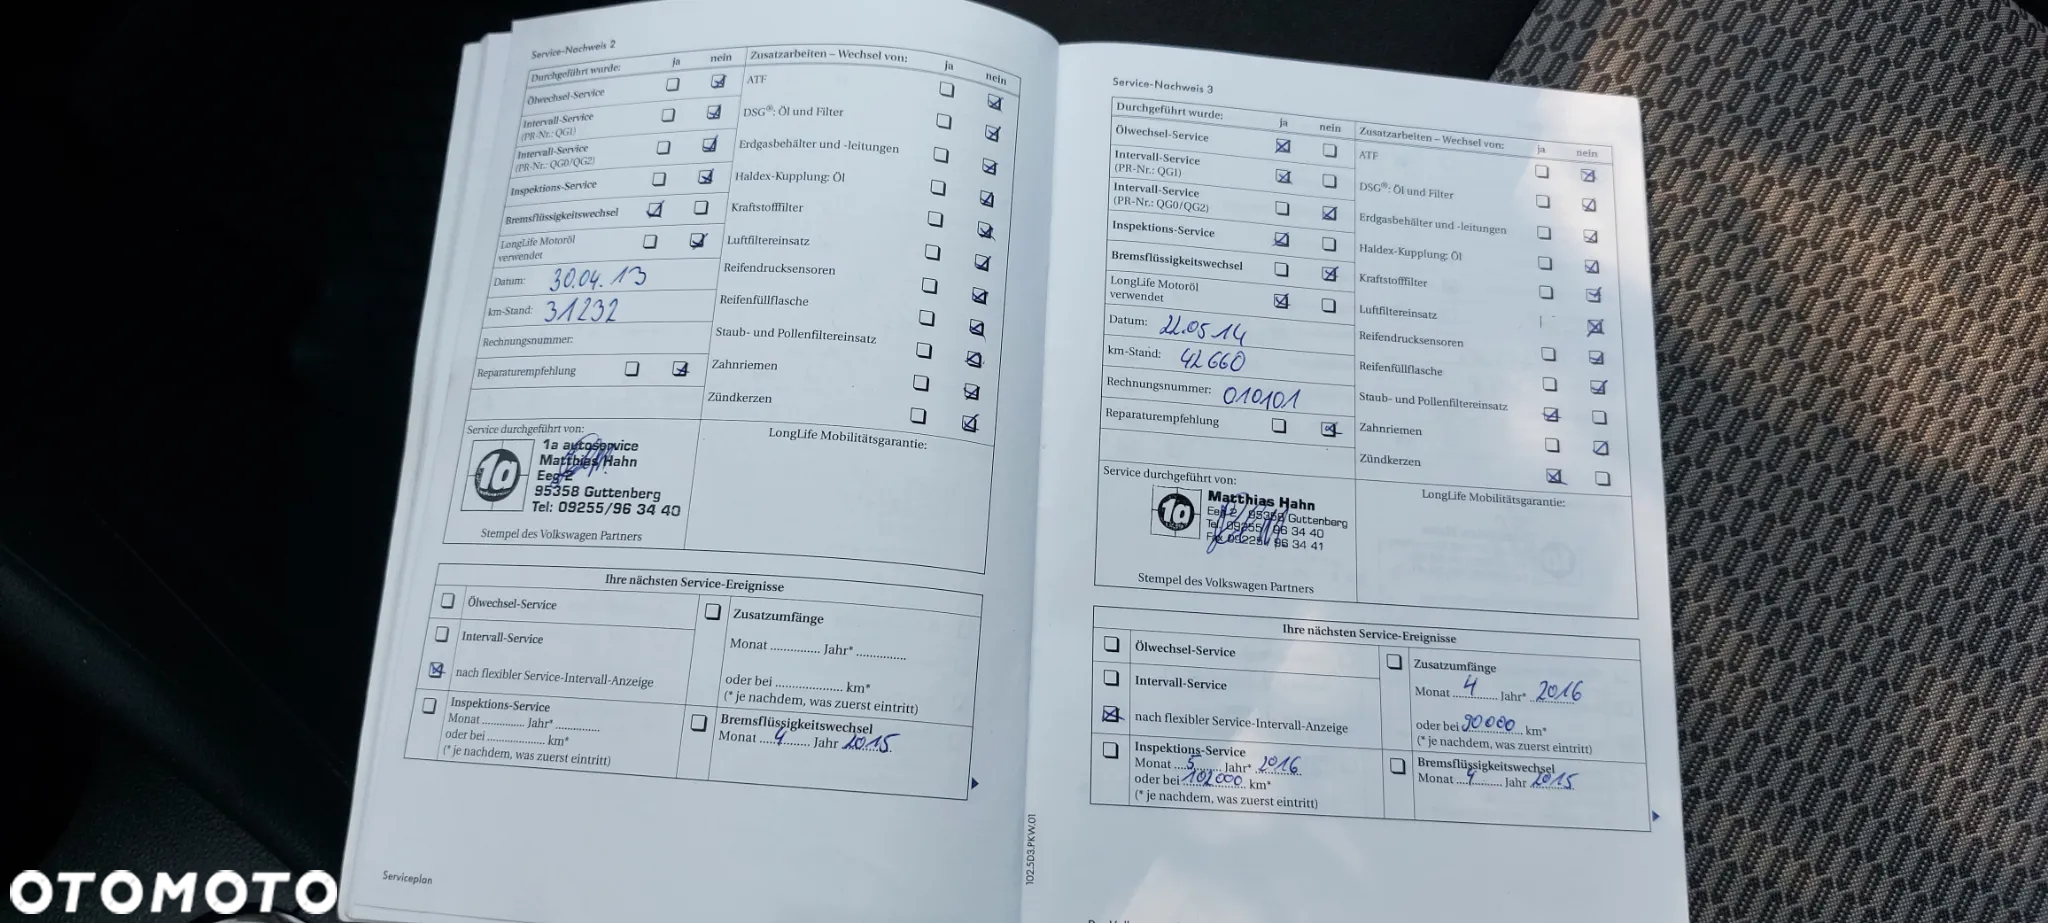 Service-Nachweis 2
Durchgeführt wurde: ja nein
Ölwechsel-Service
Intervall-Service
(PR-Nr.: QG1)
Intervall-Service
(PR-Nr.: QG0/QG2)
Inspektions-Service
Bremsflüssigkeitswechsel
LongLife Motoröl
verwendet
Datum: 30.04.13
km-Stand: 31232
Rechnungsnummer:
Reparaturempfehlung
Zusatzarbeiten – Wechsel von: ja nein
ATF
DSG®: Öl und Filter
Erdgasbehälter und -leitungen
Haldex-Kupplung: Öl
Kraftstofffilter
Luftfiltereinsatz
Reifendrucksensoren
Reifenfüllflasche
Staub- und Pollenfiltereinsatz
Zahnriemen
Zündkerzen
Service durchgeführt von:
1a
1a autoservice
Matthias Hahn
Eeg 2
95358 Guttenberg
Tel: 09255/96 34 40
Stempel des Volkswagen Partners
LongLife Mobilitätsgarantie:
Ihre nächsten Service-Ereignisse
Ölwechsel-Service
Intervall-Service
nach flexibler Service-Intervall-Anzeige
Inspektions-Service
Monat .............. Jahr* ..............
oder bei .................... km*
(* je nachdem, was zuerst eintritt)
Zusatzumfänge
Monat .............. Jahr* ..............
oder bei .................... km*
(* je nachdem, was zuerst eintritt)
Bremsflüssigkeitswechsel
Monat 4 Jahr 2015
Serviceplan
Service-Nachweis 3
Durchgeführt wurde: ja nein
Ölwechsel-Service
Intervall-Service
(PR-Nr.: QG1)
Intervall-Service
(PR-Nr.: QG0/QG2)
Inspektions-Service
Bremsflüssigkeitswechsel
LongLife Motoröl
verwendet
Datum: 22.05.14
km-Stand: 42660
Rechnungsnummer: 010101
Reparaturempfehlung
Zusatzarbeiten – Wechsel von: ja nein
ATF
DSG®: Öl und Filter
Erdgasbehälter und -leitungen
Haldex-Kupplung: Öl
Kraftstofffilter
Luftfiltereinsatz
Reifendrucksensoren
Reifenfüllflasche
Staub- und Pollenfiltereinsatz
Zahnriemen
Zündkerzen
Service durchgeführt von:
1a
Matthias Hahn
Eeg 2 / 95358 Guttenberg
Tel. 09255 / 96 34 40
Fax 09225 / 96 34 41
Stempel des Volkswagen Partners
LongLife Mobilitätsgarantie:
Ihre nächsten Service-Ereignisse
Ölwechsel-Service
Intervall-Service
nach flexibler Service-Intervall-Anzeige
Inspektions-Service
Monat 5 Jahr* 2016
oder bei 102000 km*
(* je nachdem, was zuerst eintritt)
Zusatzumfänge
Monat 4 Jahr* 2016
oder bei 90000 km*
(* je nachdem, was zuerst eintritt)
Bremsflüssigkeitswechsel
Monat 4 Jahr 2015
102.5D3.PKW.01
OTOMOTO